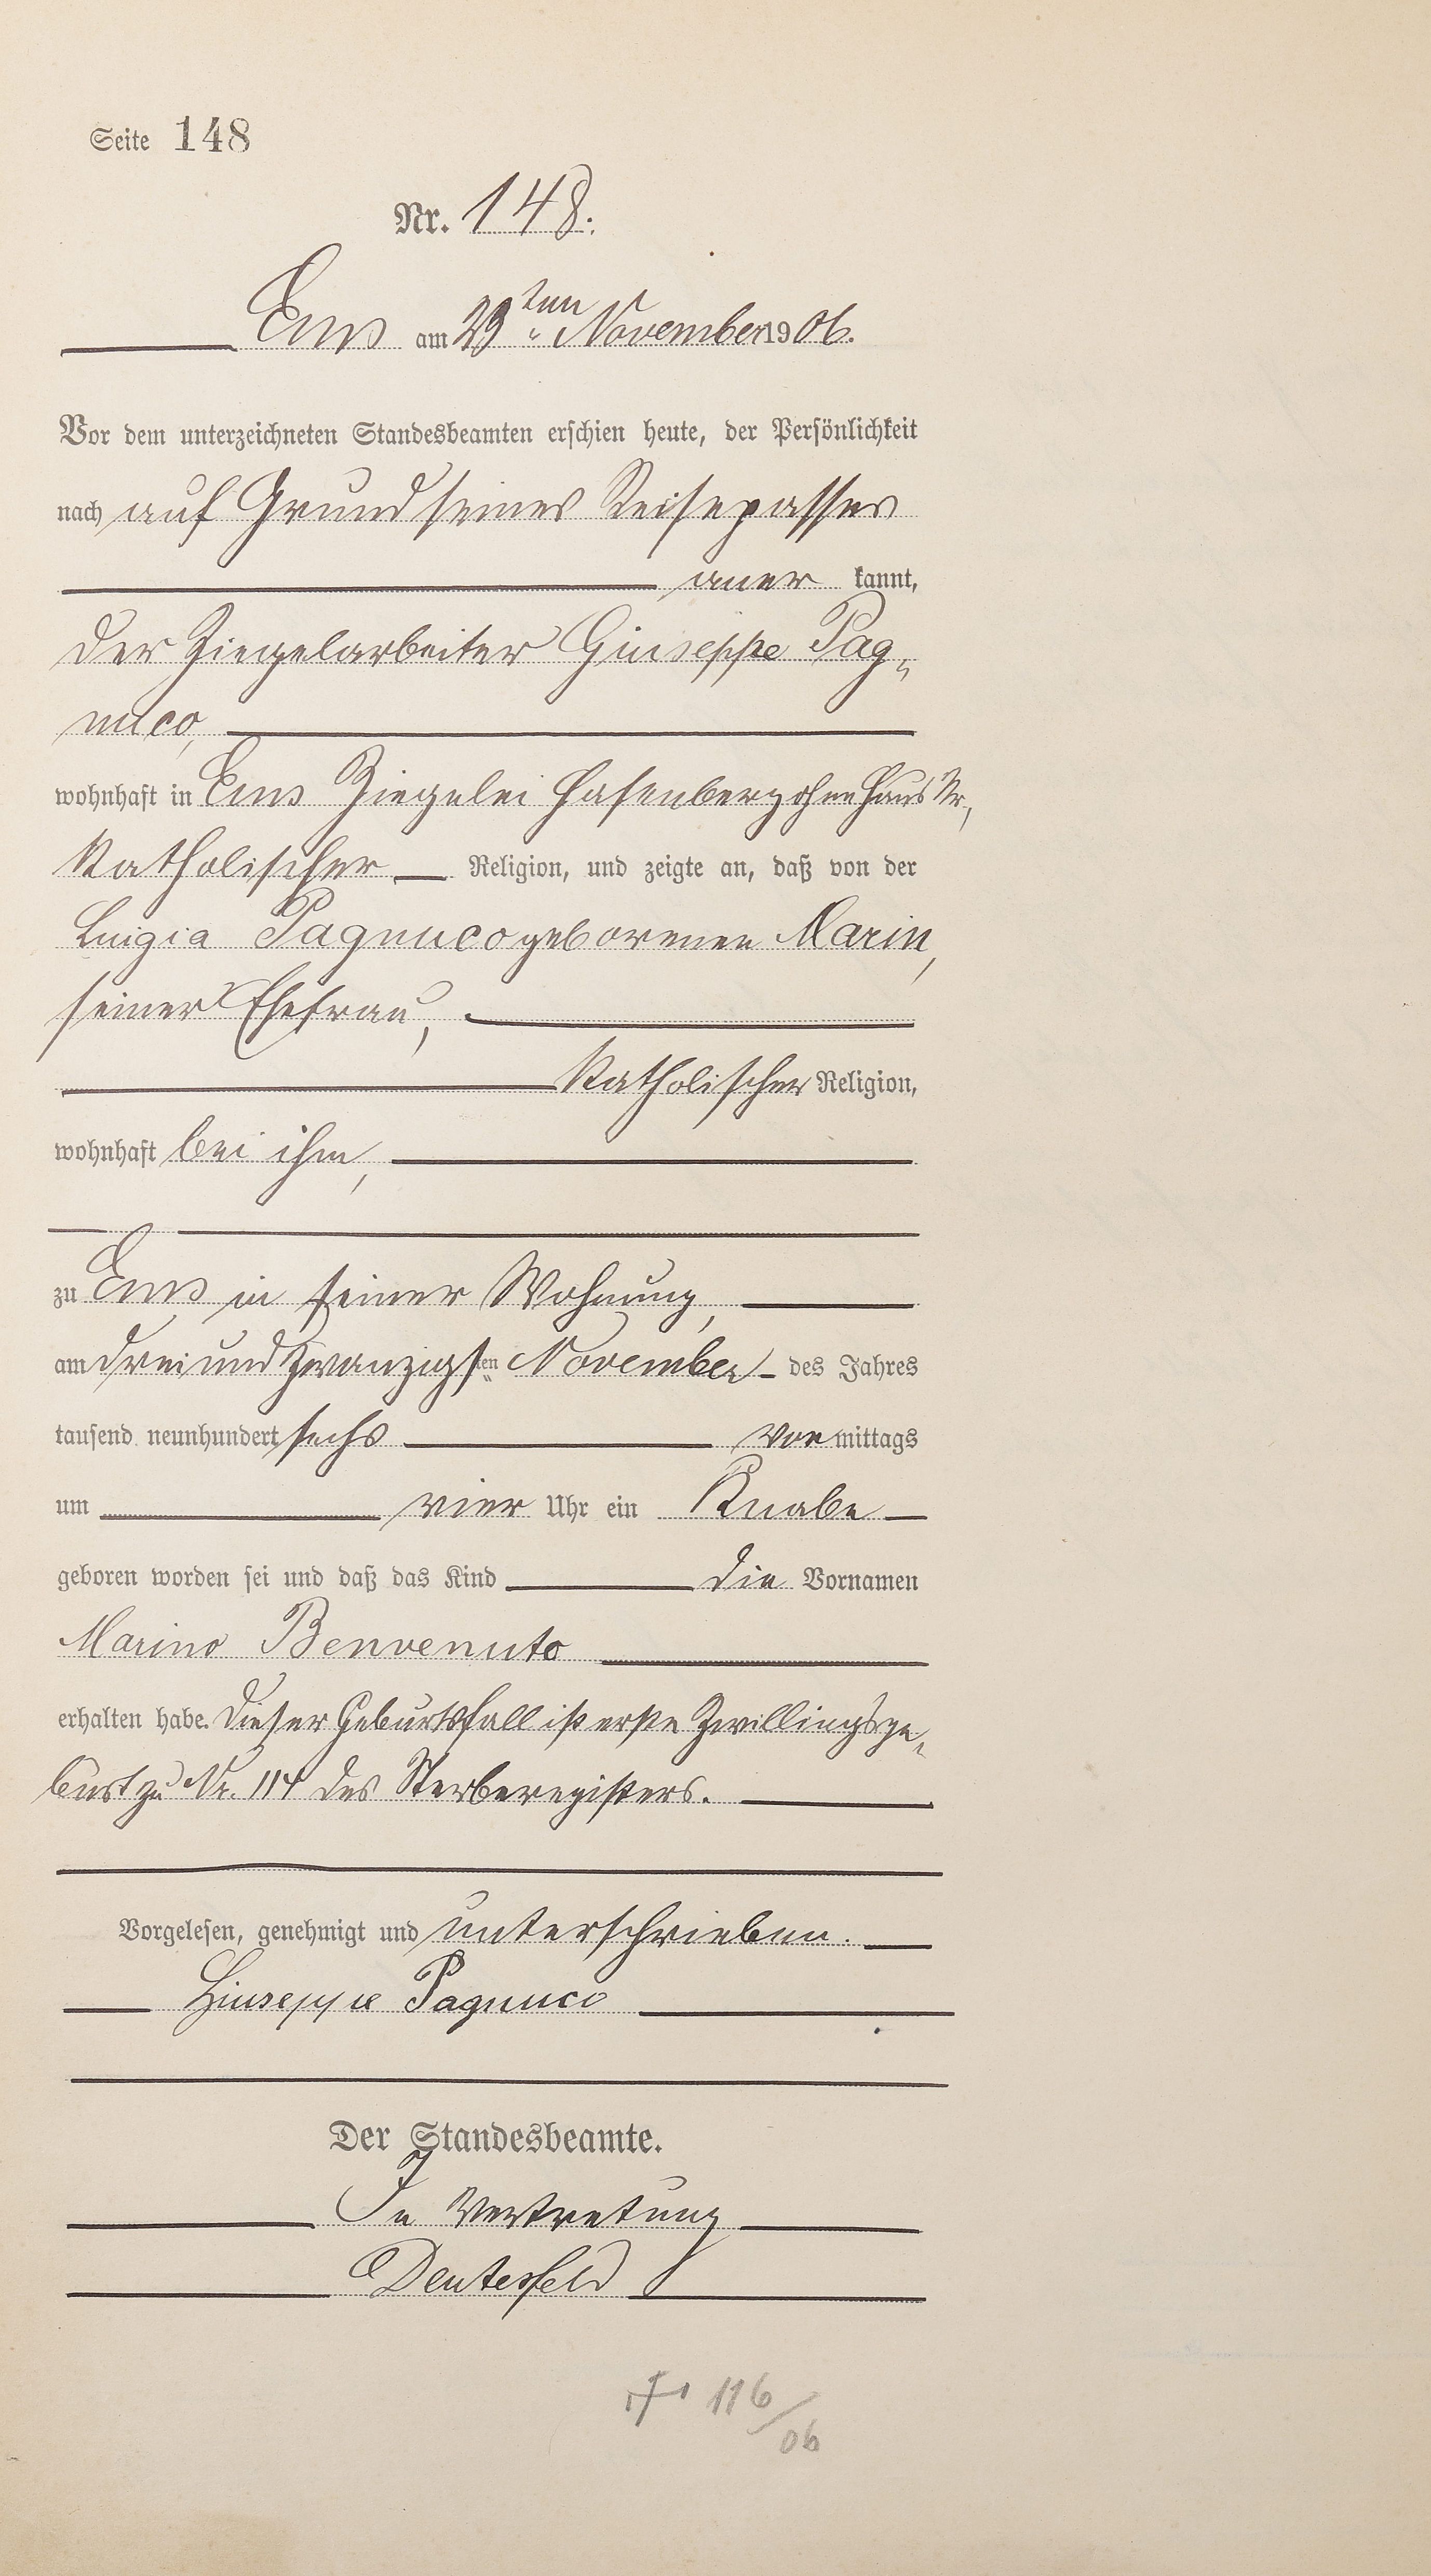 Seite 148
Nr. 148.
Ems am 23ten November 1906.
Vor dem unterzeichneten Standesbeamten erschien heute, der Persönlichkeit
nach auf Grund seines Reisepasses
aner kannt,
der Ziegelarbeiter Giuseppe Pag„
nuco,
wohnhaft in Ems Ziegelei Hasenberg ohne Haus Nr.,
katholischer Religion, und zeigte an, daß von der
Luigia Pagnuco geborenen Marin,
seiner Ehefrau,
katholischer Religion,
wohnhaft bei ihm,
zu Ems in seiner Wohnung,
am dreiundzwanzigsten November des Jahres
tausend neunhundert sechs vor mittags
um vier Uhr ein Knabe
geboren worden sei und daß das Kind die Vornamen
Marino Benvenuto
erhalten habe. Dieser Geburtsfall ist erste Zwillingsge„
burt zu Nr. 114 des Sterberegisters.
Vorgelesen, genehmigt und unterschrieben.
Giuseppe Pagnuco
Der Standesbeamte.
In Vertretung
Deutesfeld
† 116/06